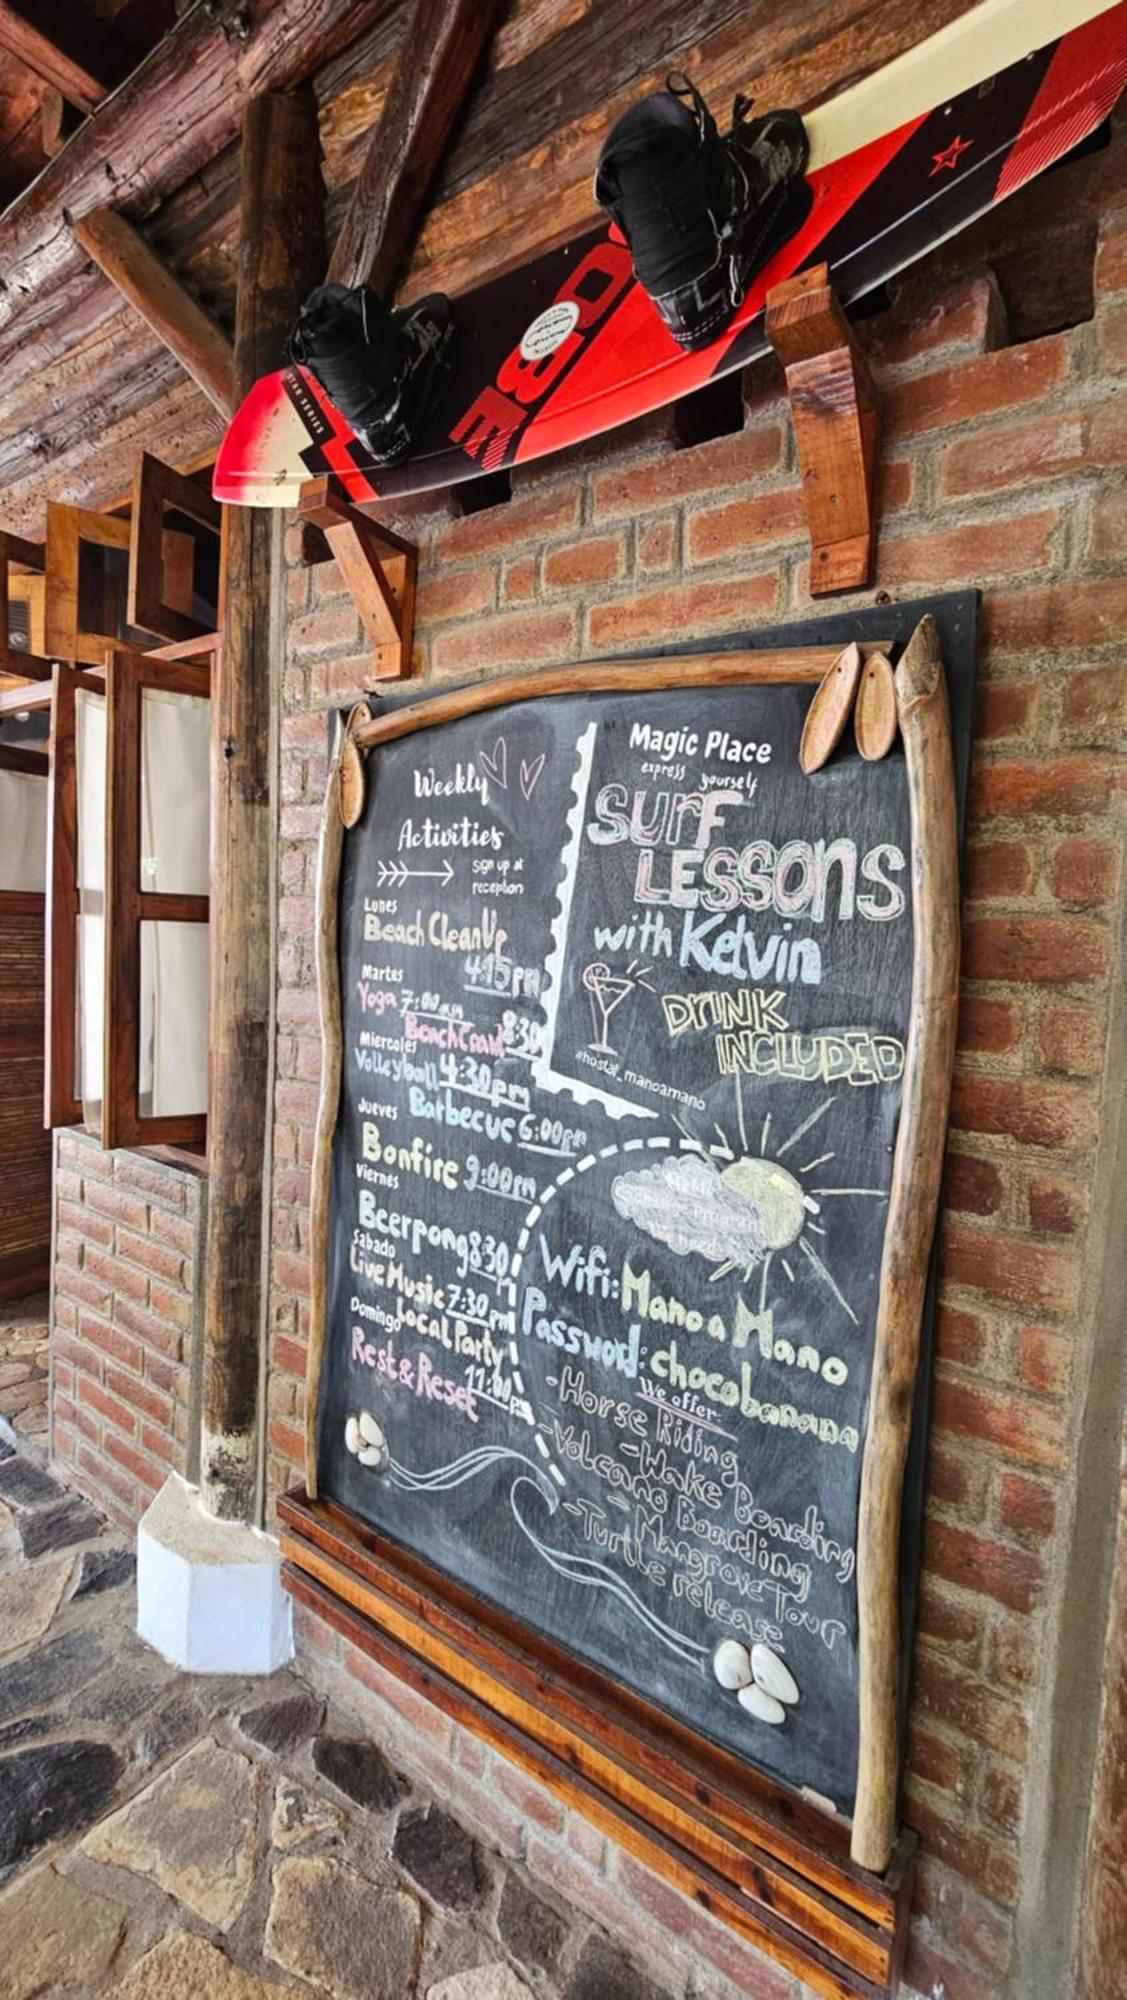 JOBE
STAR SERIES
Weekly
Activities
sign up at
reception
Lunes
Beach CleanUp
4:15pm
Martes
Yoga 7:00am
Beach Crawl 8:30
Miercoles
Volleyball 4:30pm
Barbecue 6:00pm
Jueves
Bonfire 9:00pm
Viernes
Beerpong 8:30
Sabado
Live Music 7:30pm
Local Party
11:00pm
Domingo
Rest & Reset
Magic Place
express yourself
SURF
LESSONS
with Kelvin
DRINK
INCLUDED
#hostal_manoamano
Wifi: Mano a Mano
Password: chocobanana
We offer:
-Horse Riding
-Wake Boarding
-Volcano Boarding
-Mangrove Tour
-Turtle release